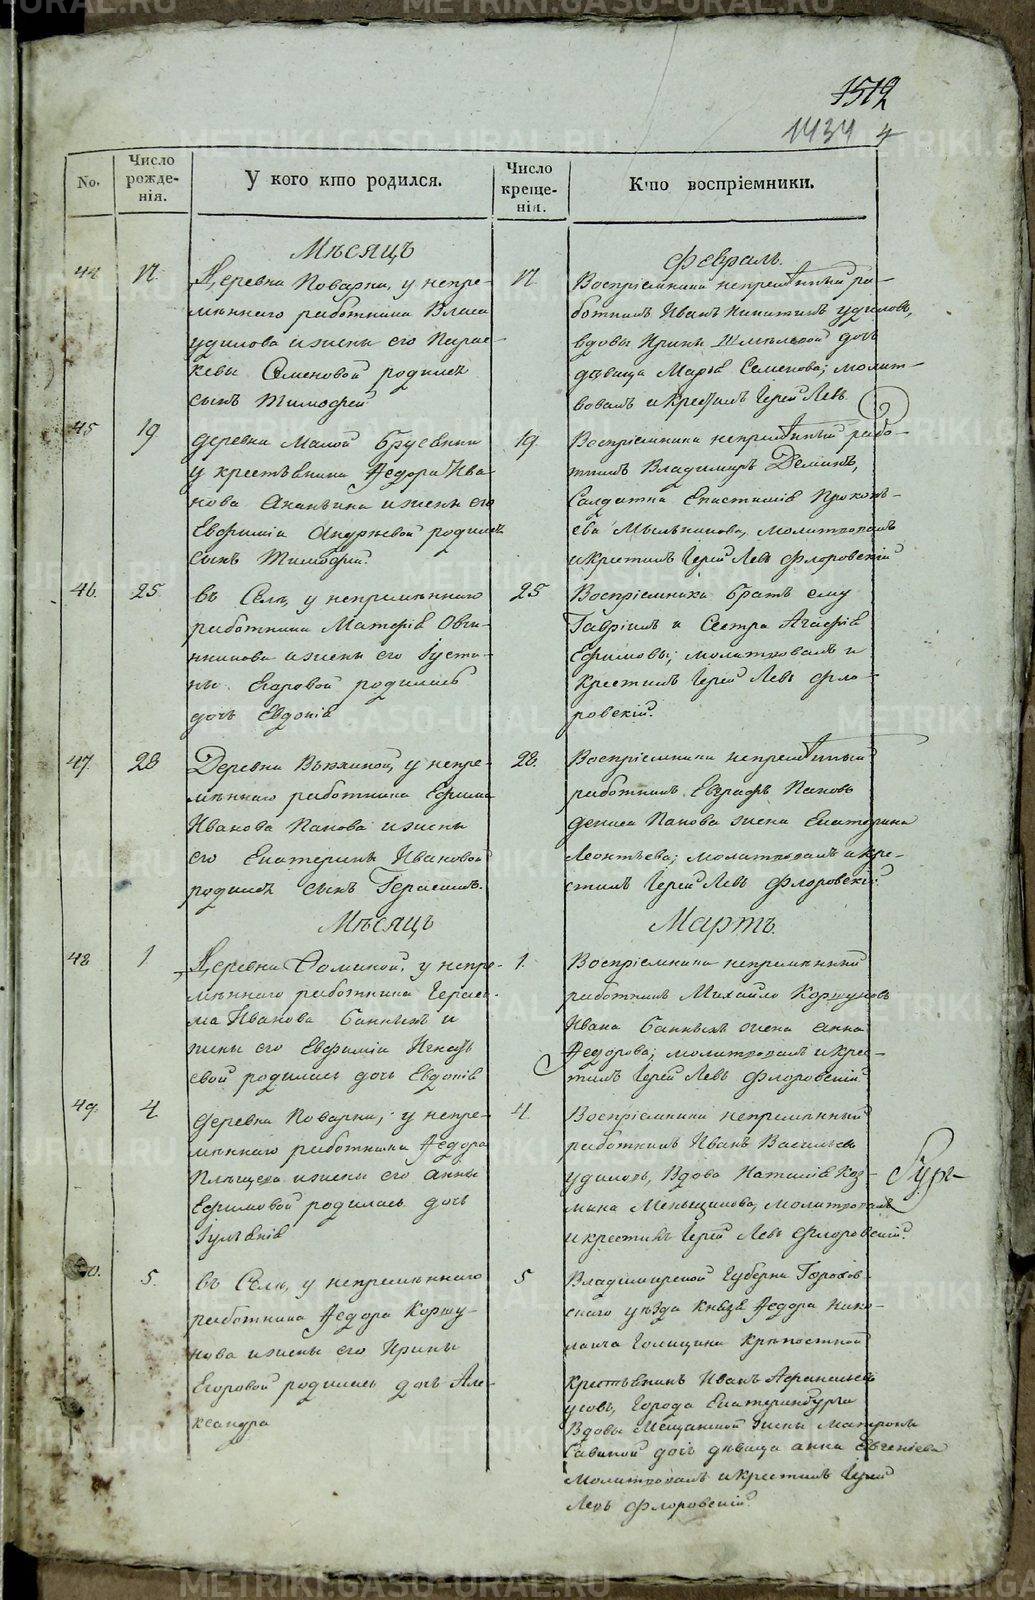 1512
1434 4
No.
Число рожде- нія.
У кого кто родился.
Число креще- нія.
Кто воспріемники.
Мѣсяцъ
Февраль.
44. 17.
Деревни Поварни, у непре-
мѣннаго работника Власа
удилова и жены его Парас-
кевы Семеновой родился
сынъ Тимофей
17.
Воспріемники непремѣнный ра-
ботникъ Иванъ Никитинъ удиловъ,
вдовы Ирины дочь
дѣвица Марья Семенова; молит-
вовалъ и крестилъ Іерей Левъ
45 19
деревни Малой Брусянки
у крестьянина Федора Ива-
нова Ананьина и жены его
Евфиміи Андреевой родился
сынъ Тимофей.
19.
Воспріемники непремѣнный рабо-
тникъ Владимиръ Деминъ,
Солдатка Епистимія Прокопь-
ева Мыльникова, молитвовалъ
и крестилъ Іерей Левъ Флоровскій
46. 25
въ Селѣ, у непремѣннаго
работника Матфія Овчи-
нникова и жены его Іусти-
ны Егоровой родилась
дочь Евдокія
25
Воспріемники братъ ему
Гавріилъ и Сестра Агафія
Ефимовы; молитвовалъ и
крестилъ Іерей Левъ Фло-
ровскій.
47. 28
Деревни у непре-
мѣннаго работника Ефима
Иванова Панова и жены
его Екатерины Ивановой
родился сынъ Герасимъ.
28.
Воспріемники непремѣнный
работникъ Евграфъ Пановъ
дениса Панова жена Екатерина
Леонтьева; молитвовалъ и кре-
стилъ Іерей Левъ Флоровскій.
Мѣсяцъ
Мартъ.
48 1
Деревни у непре-
мѣннаго работника Гераси-
ма Иванова Банныхъ и
жены его Евфиміи Игнать-
евой родилась дочь Евдокія
1.
Воспріемники непремѣнный
работникъ Михайло Коршуновъ
Ивана Банныхъ жена анна
Федорова; молитвовалъ и крес-
тилъ Іерей Левъ Флоровскій
49. 4
деревни Поварни, у непре-
мѣннаго работника Федора
Плѣщева и жены его анны
Ефимовой родилась дочь
Іуліанія
4.
Воспріемники непремѣнный
работникъ Иванъ Васильевъ
удиловъ, Вдова Наталія Коз-
мина Меньщикова, молитвовалъ
и крестилъ Іерей Левъ Флоровскій.
5.
въ Селѣ, у непремѣннаго
работника Федора Коршу-
нова и жены его Ирины
Егоровой родилась дочь Але-
ксандра
5
Владимирской Губерніи Горохов-
скаго уѣзда Князя Федора Нико-
лаича Голицина крѣпостной
крестьянинъ Иванъ
Города Екатеринбурга
Вдовы Мещанской жены Матроны
Савиной дочь дѣвица анна Евгеніева
Молитвовалъ и крестилъ Іерей
Левъ Флоровскій.
METRIKI.GASO-URAL.RU